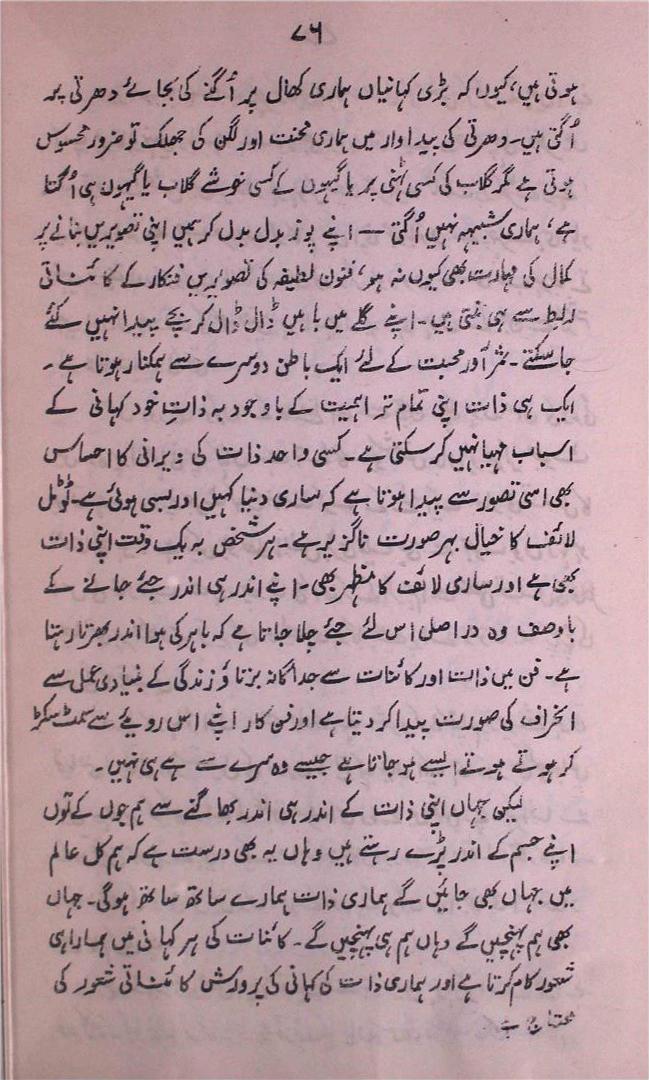 ۷۶
ہوتی ہیں، کیوں کہ بڑی کہانیاں ہماری کھال پر اُگنے کی بجائے دھرتی پر
اُگتی ہیں۔ دھرتی کی پیداوار میں ہماری محنت اور لگن کی جھلک تو ضرور محسوس
ہوتی ہے مگر گلاب کی کسی ٹہنی پر یا گیہوں کے کسی خوشے گلاب یا گیہوں ہی اُگتا
ہے، ہماری شبیہہ نہیں اُگتی — اپنے پوز بدل بدل کر ہمیں اپنی تصویریں بنانے پر
کمال کی مہارت بھی کیوں نہ ہو، فنون لطیفہ کی تصویریں فنکار کے کائناتی
ربط سے ہی بنتی ہیں۔ اپنے گلے میں باہیں ڈال ڈال کر بچے پیدا نہیں کئے
جا سکتے۔ ثمر آور محبت کے لئے ایک باطن دوسرے سے ہمکنار ہوتا ہے۔
ایک ہی ذات اپنی تمام تر اہمیت کے باوجود بہ ذاتِ خود کہانی کے
اسباب مہیا نہیں کر سکتی ہے۔ کسی واحد ذات کی ویرانی کا احساس
بھی اسی تصور سے پیدا ہوتا ہے کہ ساری دنیا کہیں اور بسی ہوئی ہے۔ ٹوٹل
لائف کا خیال بہر صورت ناگزیر ہے۔ ہر شخص بہ یک وقت اپنی ذات
بھی ہے اور ساری لائف کا مظہر بھی۔ اپنے اندر ہی اندر جئے جانے کے
باوصف وہ دراصل اس لئے جئے چلا جاتا ہے کہ باہر کی ہوا اندر بھرتا رہتا
ہے۔ فن میں ذات اور کائنات سے جداگانہ برتاؤ زندگی کے بنیادی عمل سے
انحراف کی صورت پیدا کر دیتا ہے اور فن کار اپنے اس رویئے سے سمٹ سکڑ
کر ہوتے ہوتے ایسے ہو جاتا ہے جیسے وہ سرے سے ہے ہی نہیں۔
لیکن جہاں اپنی ذات کے اندر ہی اندر بھاگنے سے ہم جوں کے توں
اپنے جسم کے اندر پڑے رہتے ہیں وہاں یہ بھی درست ہے کہ ہم کل عالم
میں جہاں بھی جائیں گے ہماری ذات ہمارے ساتھ ساتھ ہوگی۔ جہاں
بھی ہم پہنچیں گے وہاں ہم ہی پہنچیں گے۔ کائنات کی ہر کہانی میں ہمارا ہی
شعور کام کرتا ہے اور ہماری ذات کی کہانی کی پرورش کائناتی شعور کی
محتاج ہے۔